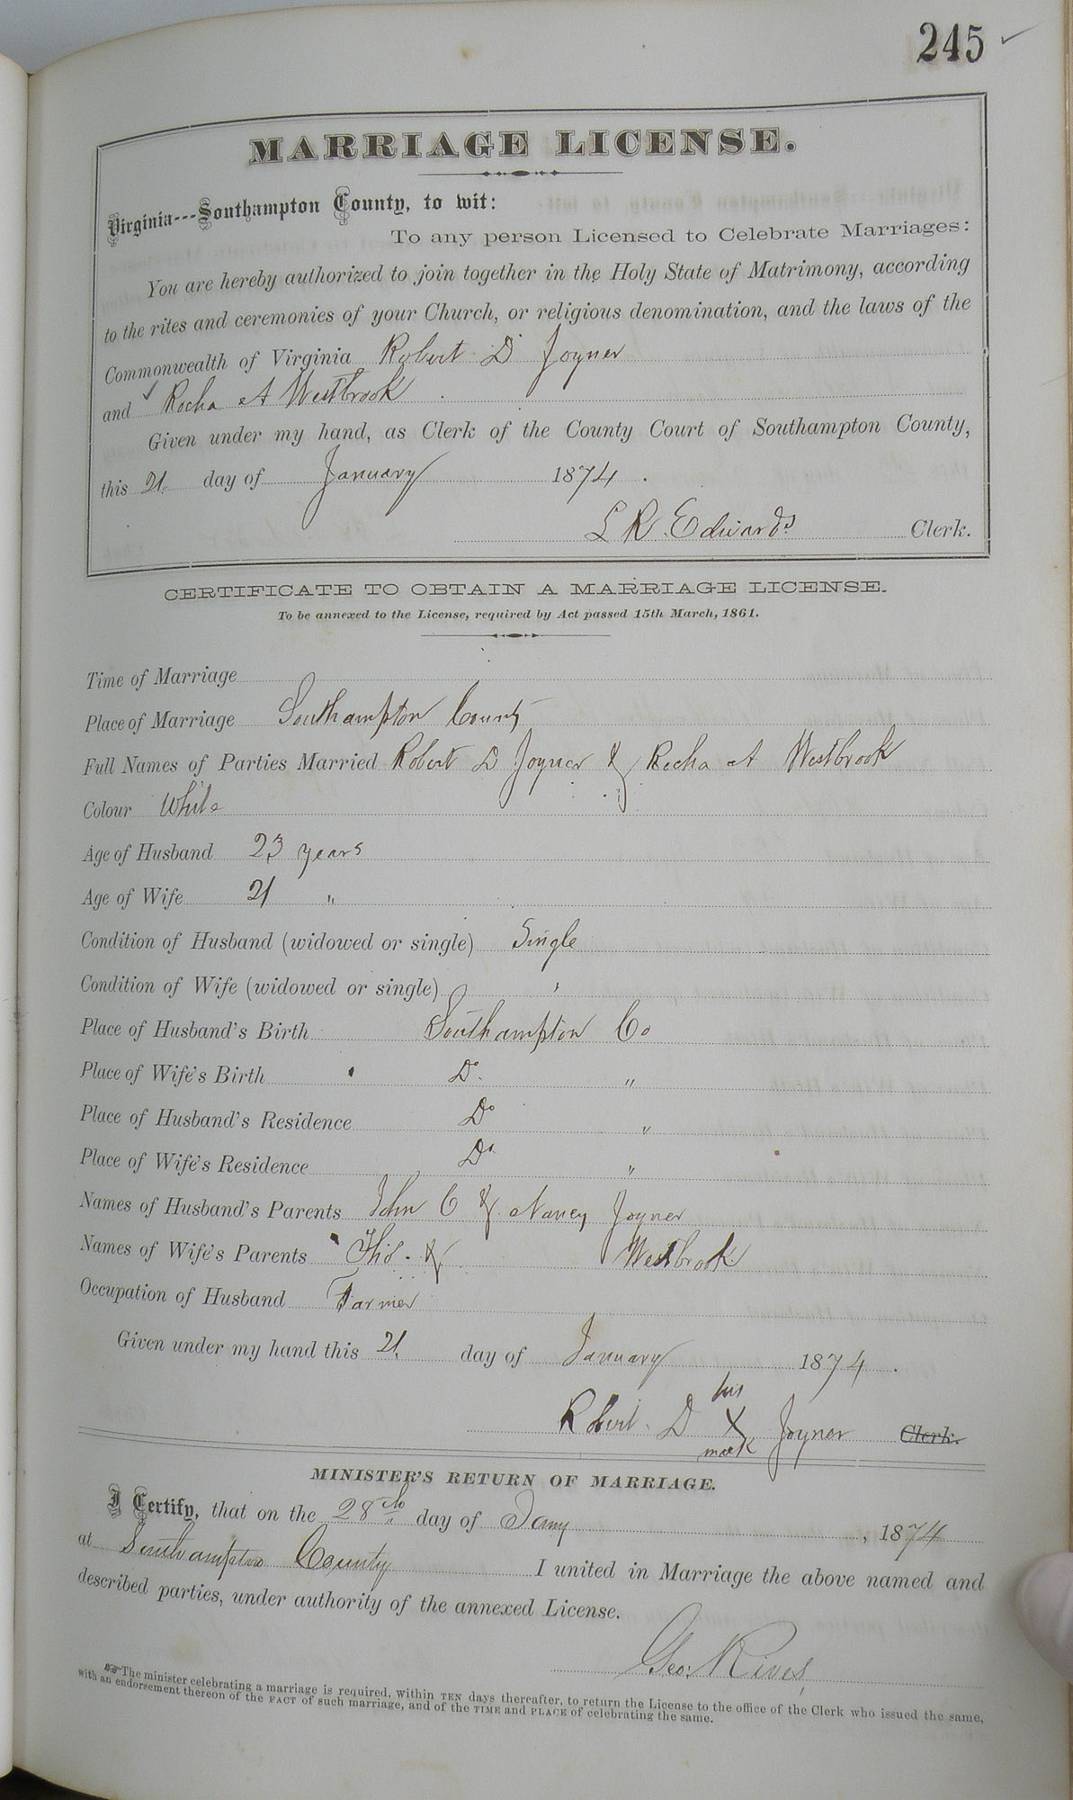 245
MARRIAGE LICENSE.
Virginia---Southampton County, to wit:
To any person Licensed to Celebrate Marriages:
You are hereby authorized to join together in the Holy State of Matrimony, according
to the rites and ceremonies of your Church, or religious denomination, and the laws of the
Commonwealth of Virginia Robert D Joyner
and Rocha A Westbrook
Given under my hand, as Clerk of the County Court of Southampton County,
this 21. day of January 1874.
L R Edwards Clerk.
CERTIFICATE TO OBTAIN A MARRIAGE LICENSE.
To be annexed to the License, required by Act passed 15th March, 1861.
Time of Marriage
Place of Marriage Southampton County
Full Names of Parties Married Robert D Joyner & Rocha A Westbrook
Colour White
Age of Husband 23 years
Age of Wife 21 "
Condition of Husband (widowed or single) Single
Condition of Wife (widowed or single) "
Place of Husband's Birth Southampton Co
Place of Wife's Birth Do "
Place of Husband's Residence Do "
Place of Wife's Residence Do "
Names of Husband's Parents John C & Nancy Joyner
Names of Wife's Parents Thos. & Westbrook
Occupation of Husband Farmer
Given under my hand this 21. day of January 1874.
his
Robert D X Joyner Clerk.
mark
MINISTER'S RETURN OF MARRIAGE.
I Certify, that on the 28th day of Jany, 1874
at Southampton County I united in Marriage the above named and
described parties, under authority of the annexed License.
Geo: Rives
☞ The minister celebrating a marriage is required, within TEN days thereafter, to return the License to the office of the Clerk who issued the same,
with an endorsement thereon of the FACT of such marriage, and of the TIME and PLACE of celebrating the same.